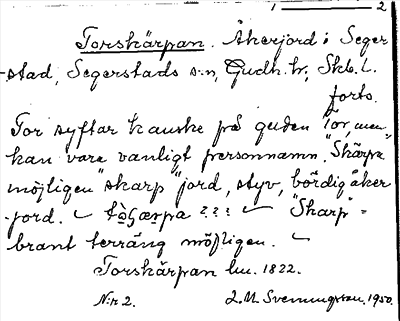 1 — 2
Torskärpan. Åkerjord i Seger-
stad, Segerstads s:n, Gudh. hr, Skb. l.
forts.
Tor syftar kanske på guden Tor, men
kan vara vanligt personnamn, "Skärpa
möjligen "skarp" jord, styv, bördig åker
jord. ✓ ??? ✓ "Skarp" =
brant terräng möjligen. ✓
Torskärpan lm. 1822.
N:r 2. L. M. Svenungsson. 1950.